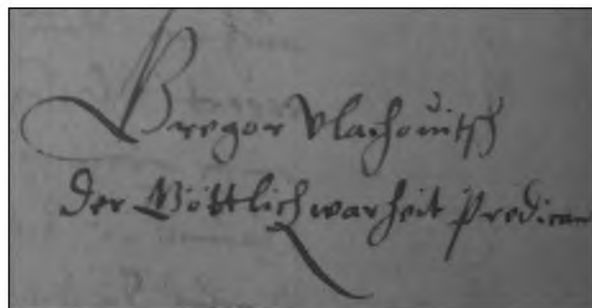 Gregor Vlachouitsch
der Göttlich warheit Predican